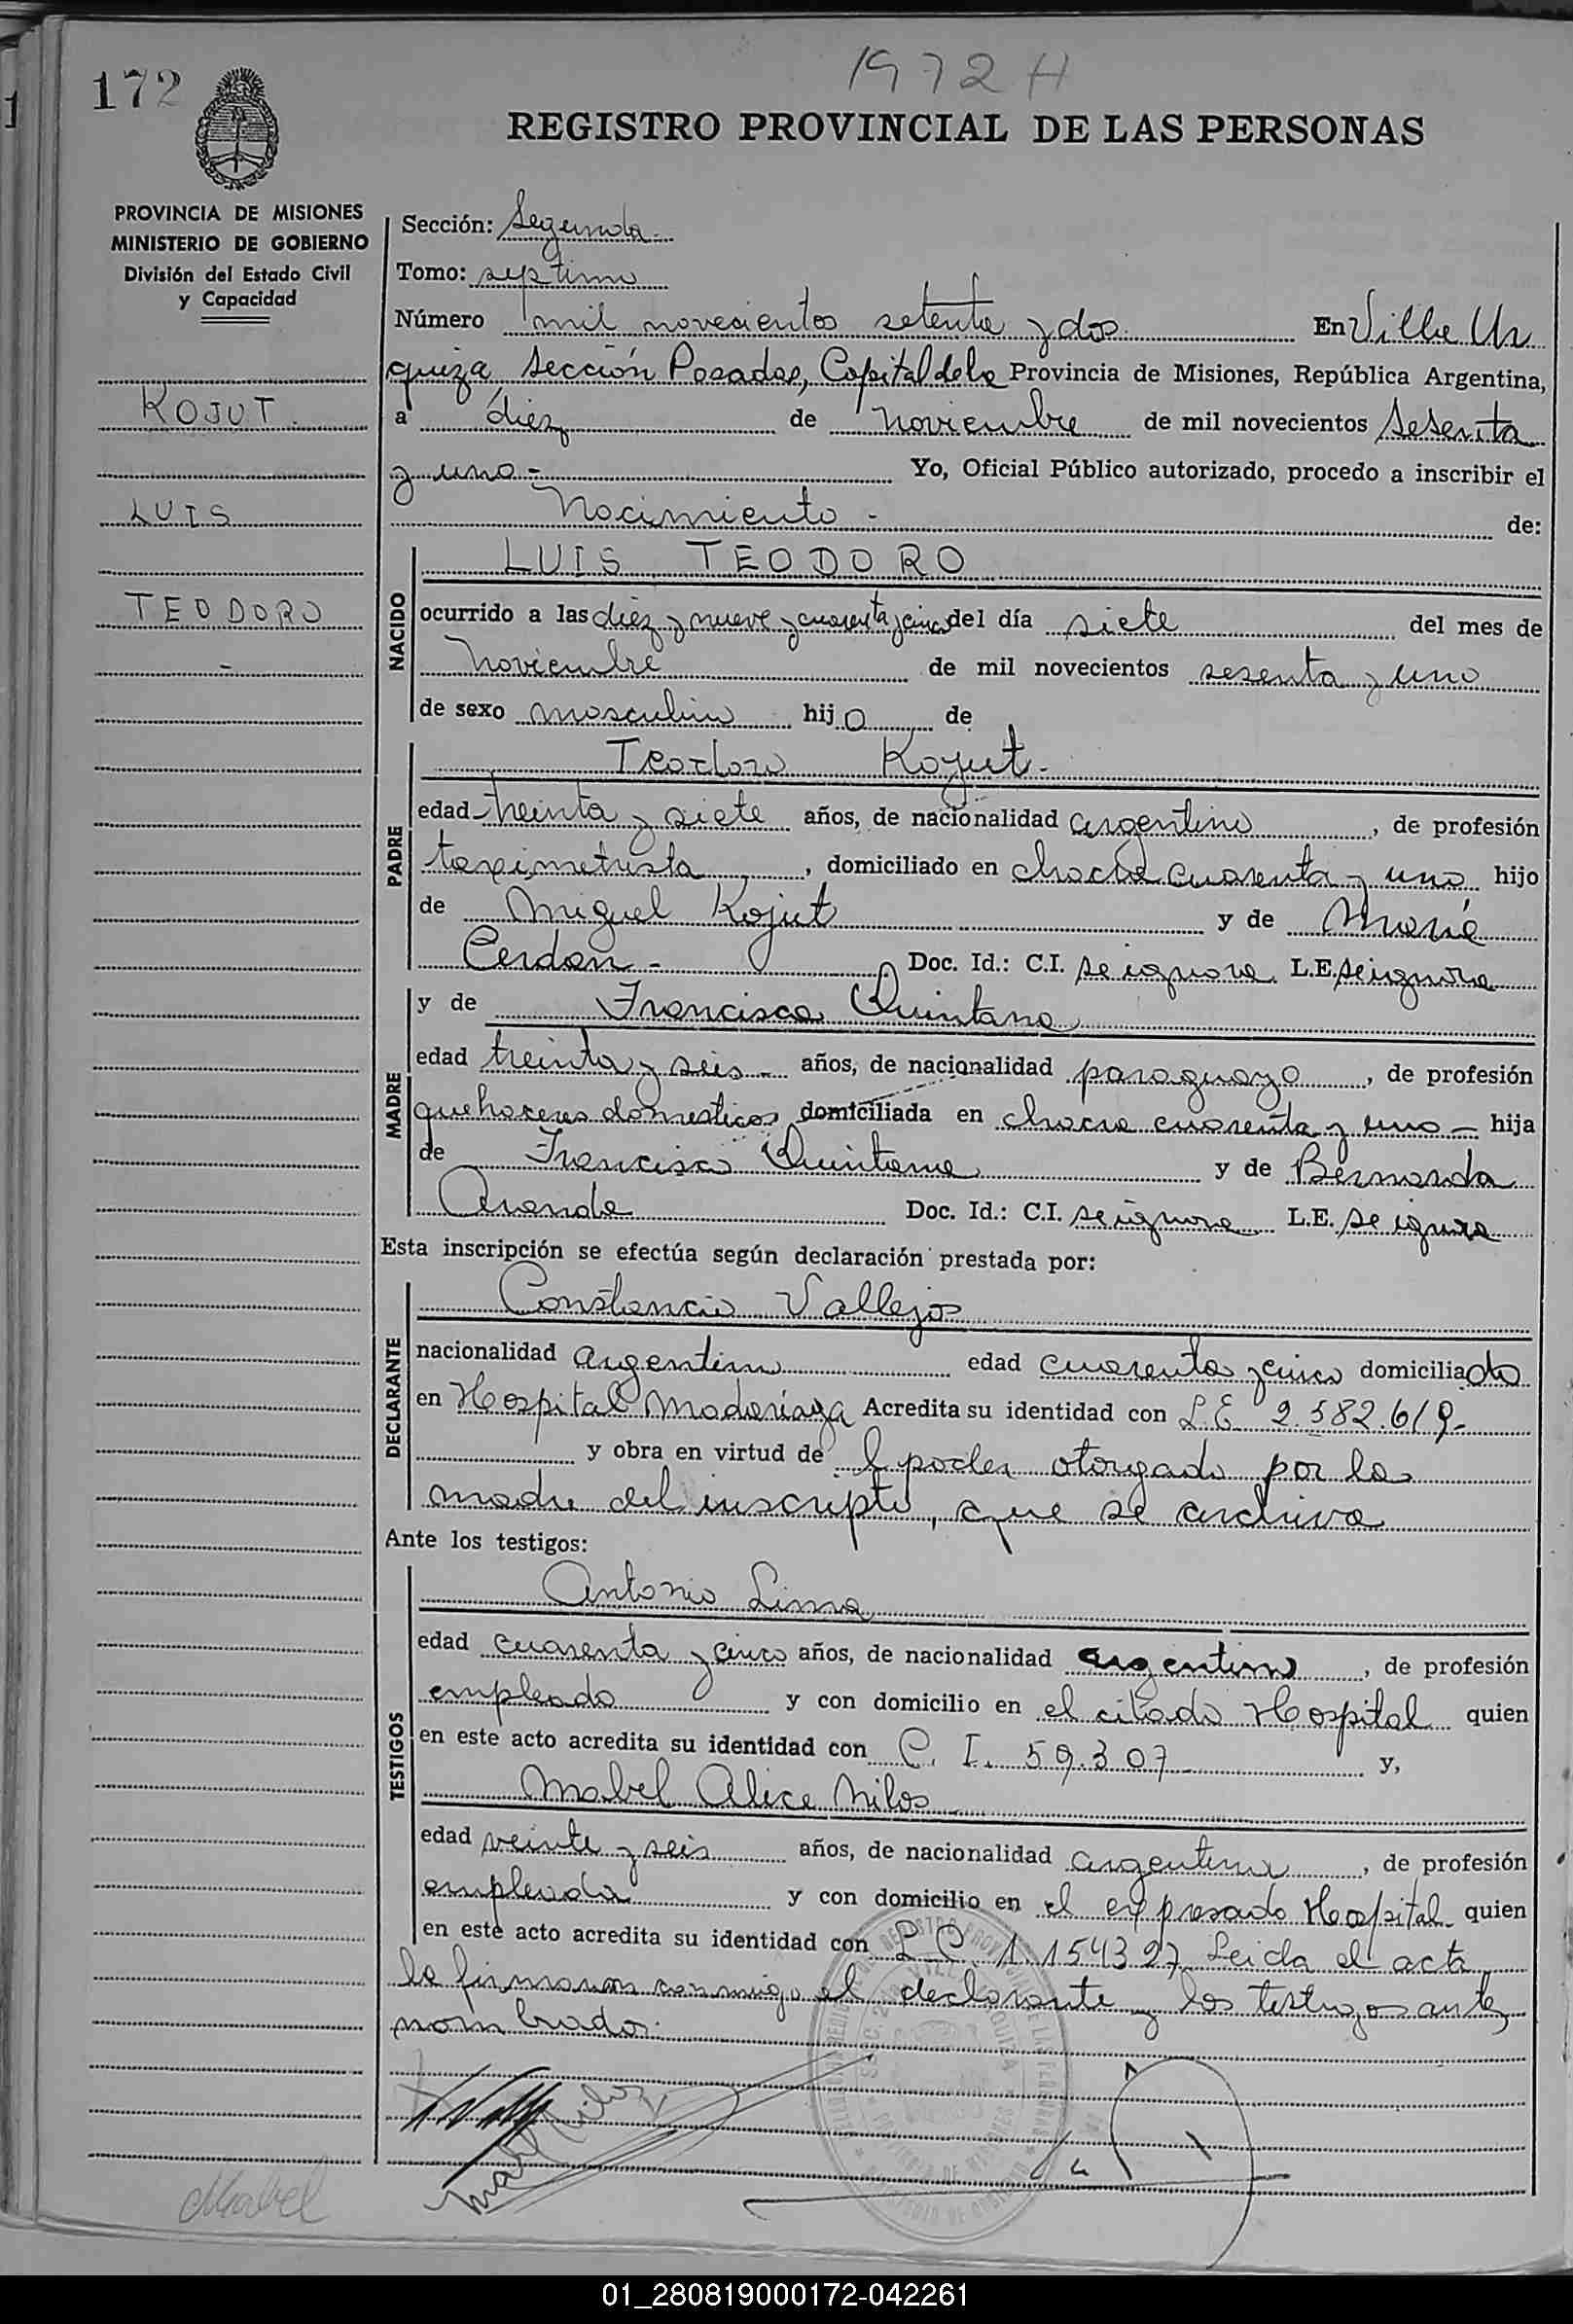 172
1972 H
REGISTRO PROVINCIAL DE LAS PERSONAS
PROVINCIA DE MISIONES
MINISTERIO DE GOBIERNO
División del Estado Civil
y Capacidad
KOJUT
LUIS
TEODORO
Sección: Segunda
Tomo: septimo
Número mil novecientos setenta y dos En Villa Ur
quiza, Sección Posadas, Capital de la Provincia de Misiones, República Argentina,
a diez de noviembre de mil novecientos sesenta
y uno - Yo, Oficial Público autorizado, procedo a inscribir el
Nacimiento - de:
NACIDO
LUIS TEODORO
ocurrido a las diez y nueve y cuarenta y cinco del día siete del mes de
noviembre de mil novecientos sesenta y uno
de sexo masculino hijo de
PADRE
Teodoro Kojut -
edad treinta y siete años, de nacionalidad argentino, de profesión
taximetrista, domiciliado en chacra cuarenta y uno hijo
de Miguel Kojut y de María
Cerdan - Doc. Id.: C.I. se ignora L.E. se ignora
MADRE
y de Francisca Quintana
edad treinta y seis - años, de nacionalidad paraguaya, de profesión
quehaceres domesticos domiciliada en chacra cuarenta y uno - hija
de Francisco Quintana y de Bernarda
Aranda Doc. Id.: C.I. se ignora L.E. se ignora
Esta inscripción se efectúa según declaración prestada por:
DECLARANTE
Constancio Vallejos
nacionalidad argentino edad cuarenta y cinco domiciliado
en Hospital Madariaga Acredita su identidad con L.E 2.582.619-
y obra en virtud de l poder otorgado por la
madre del inscripto, que se archiva
Ante los testigos:
TESTIGOS
Antonio Lima
edad cuarenta y cinco años, de nacionalidad argentino, de profesión
empleado y con domicilio en el citado Hospital quien
en este acto acredita su identidad con C. I. 59.307 y,
Mabel Alice Milos
edad veinte y seis años, de nacionalidad argentina, de profesión
empleada y con domicilio en el expresado Hospital quien
en este acto acredita su identidad con L C. 1.154327 Leida el acta
la firmaron conmigo el declarante y los testigos antes
nombrados.
Mabel
01_280819000172-042261